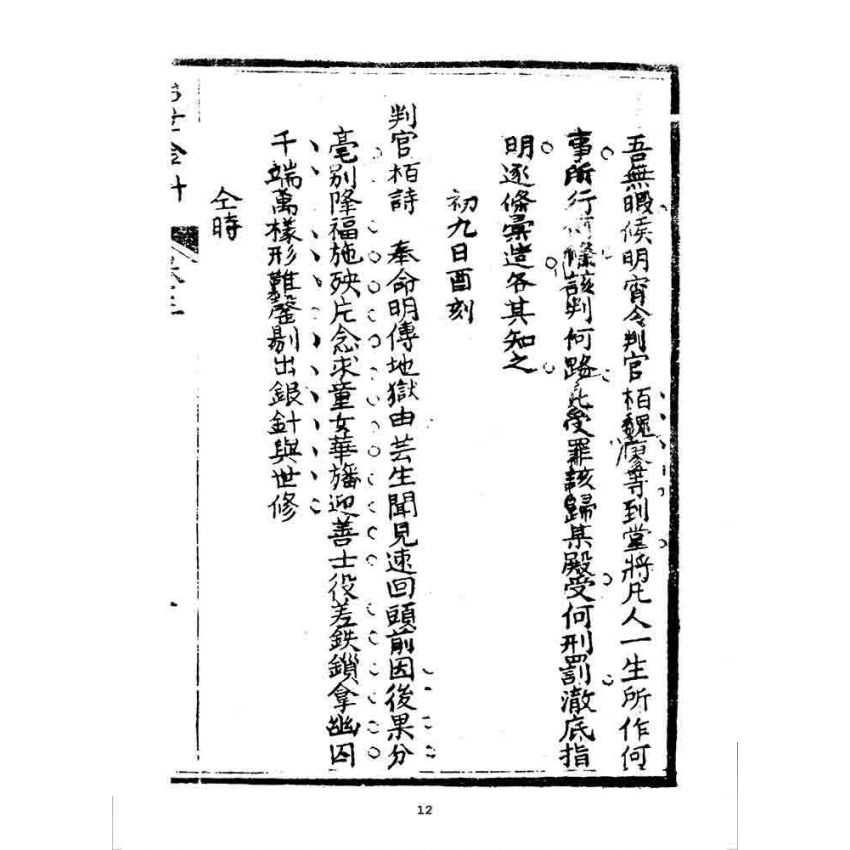 吾無暇候明宵令判官栢魏廖等到堂將凡人一生所作何
事所行何條該判何路死受罪該歸某殿受何刑罰澈底指
明逐條彙造各其知之
初九日酉刻
判官栢詩 奉命明傳地獄由芸生聞見速回頭前因後果分
毫別降福施殃片念求童女華旛迎善士役差鉄鎖拿幽囚
千端萬樣形難罄剔出銀針與世修
仝時
世金針
卷三
12